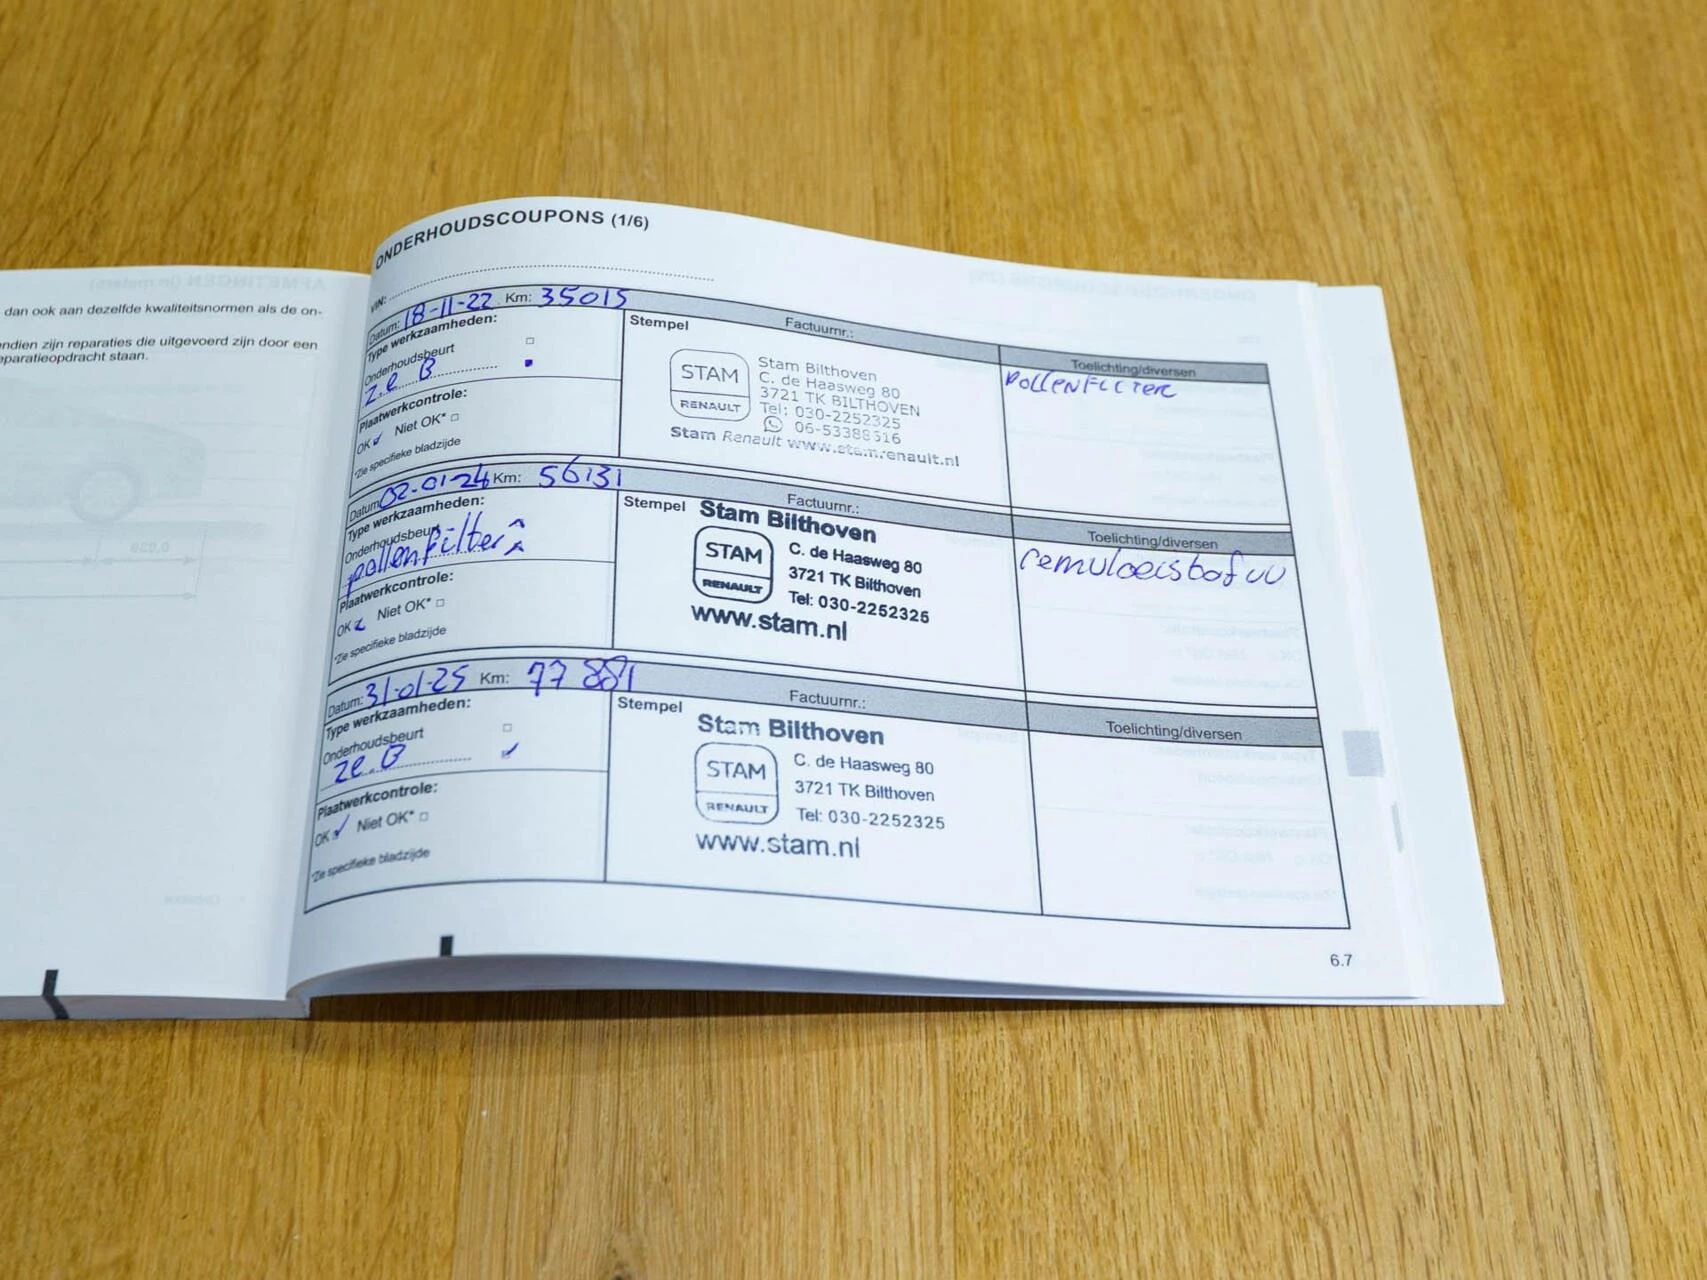 dan ook aan dezelfde kwaliteitsnormen als de on-
endien zijn reparaties die uitgevoerd zijn door een
eparatieopdracht staan.
ONDERHOUDSCOUPONS (1/6)
VIN:
Datum: 18-11-22 Km: 35015
Type werkzaamheden:
Onderhoudsbeurt
Z.e B
Plaatwerkcontrole:
OK Niet OK*
*Zie specifieke bladzijde
Stempel Factuurnr.:
STAM
RENAULT
Stam Bilthoven
C. de Haasweg 80
3721 TK BILTHOVEN
Tel: 030-2252325
Stam Renault www.stamrenault.nl
Toelichting/diversen
POLLENFILTER
Datum 02-01-24 Km: 56131
Type werkzaamheden:
Onderhoudsbeurt
pollenfilter
Plaatwerkcontrole:
OK Niet OK*
*Zie specifieke bladzijde
Stempel Factuurnr.:
Stam Bilthoven
STAM
RENAULT
C. de Haasweg 80
3721 TK Bilthoven
Tel: 030-2252325
www.stam.nl
Toelichting/diversen
remvloeistof vv
Datum: 31-01-25 Km: 77881
Type werkzaamheden:
Onderhoudsbeurt
ze.B
Plaatwerkcontrole:
OK Niet OK*
*Zie specifieke bladzijde
Stempel Factuurnr.:
Stam Bilthoven
STAM
RENAULT
C. de Haasweg 80
3721 TK Bilthoven
Tel: 030-2252325
www.stam.nl
Toelichting/diversen
6.7